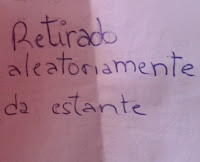 Retirado
aleatoriamente
da estante